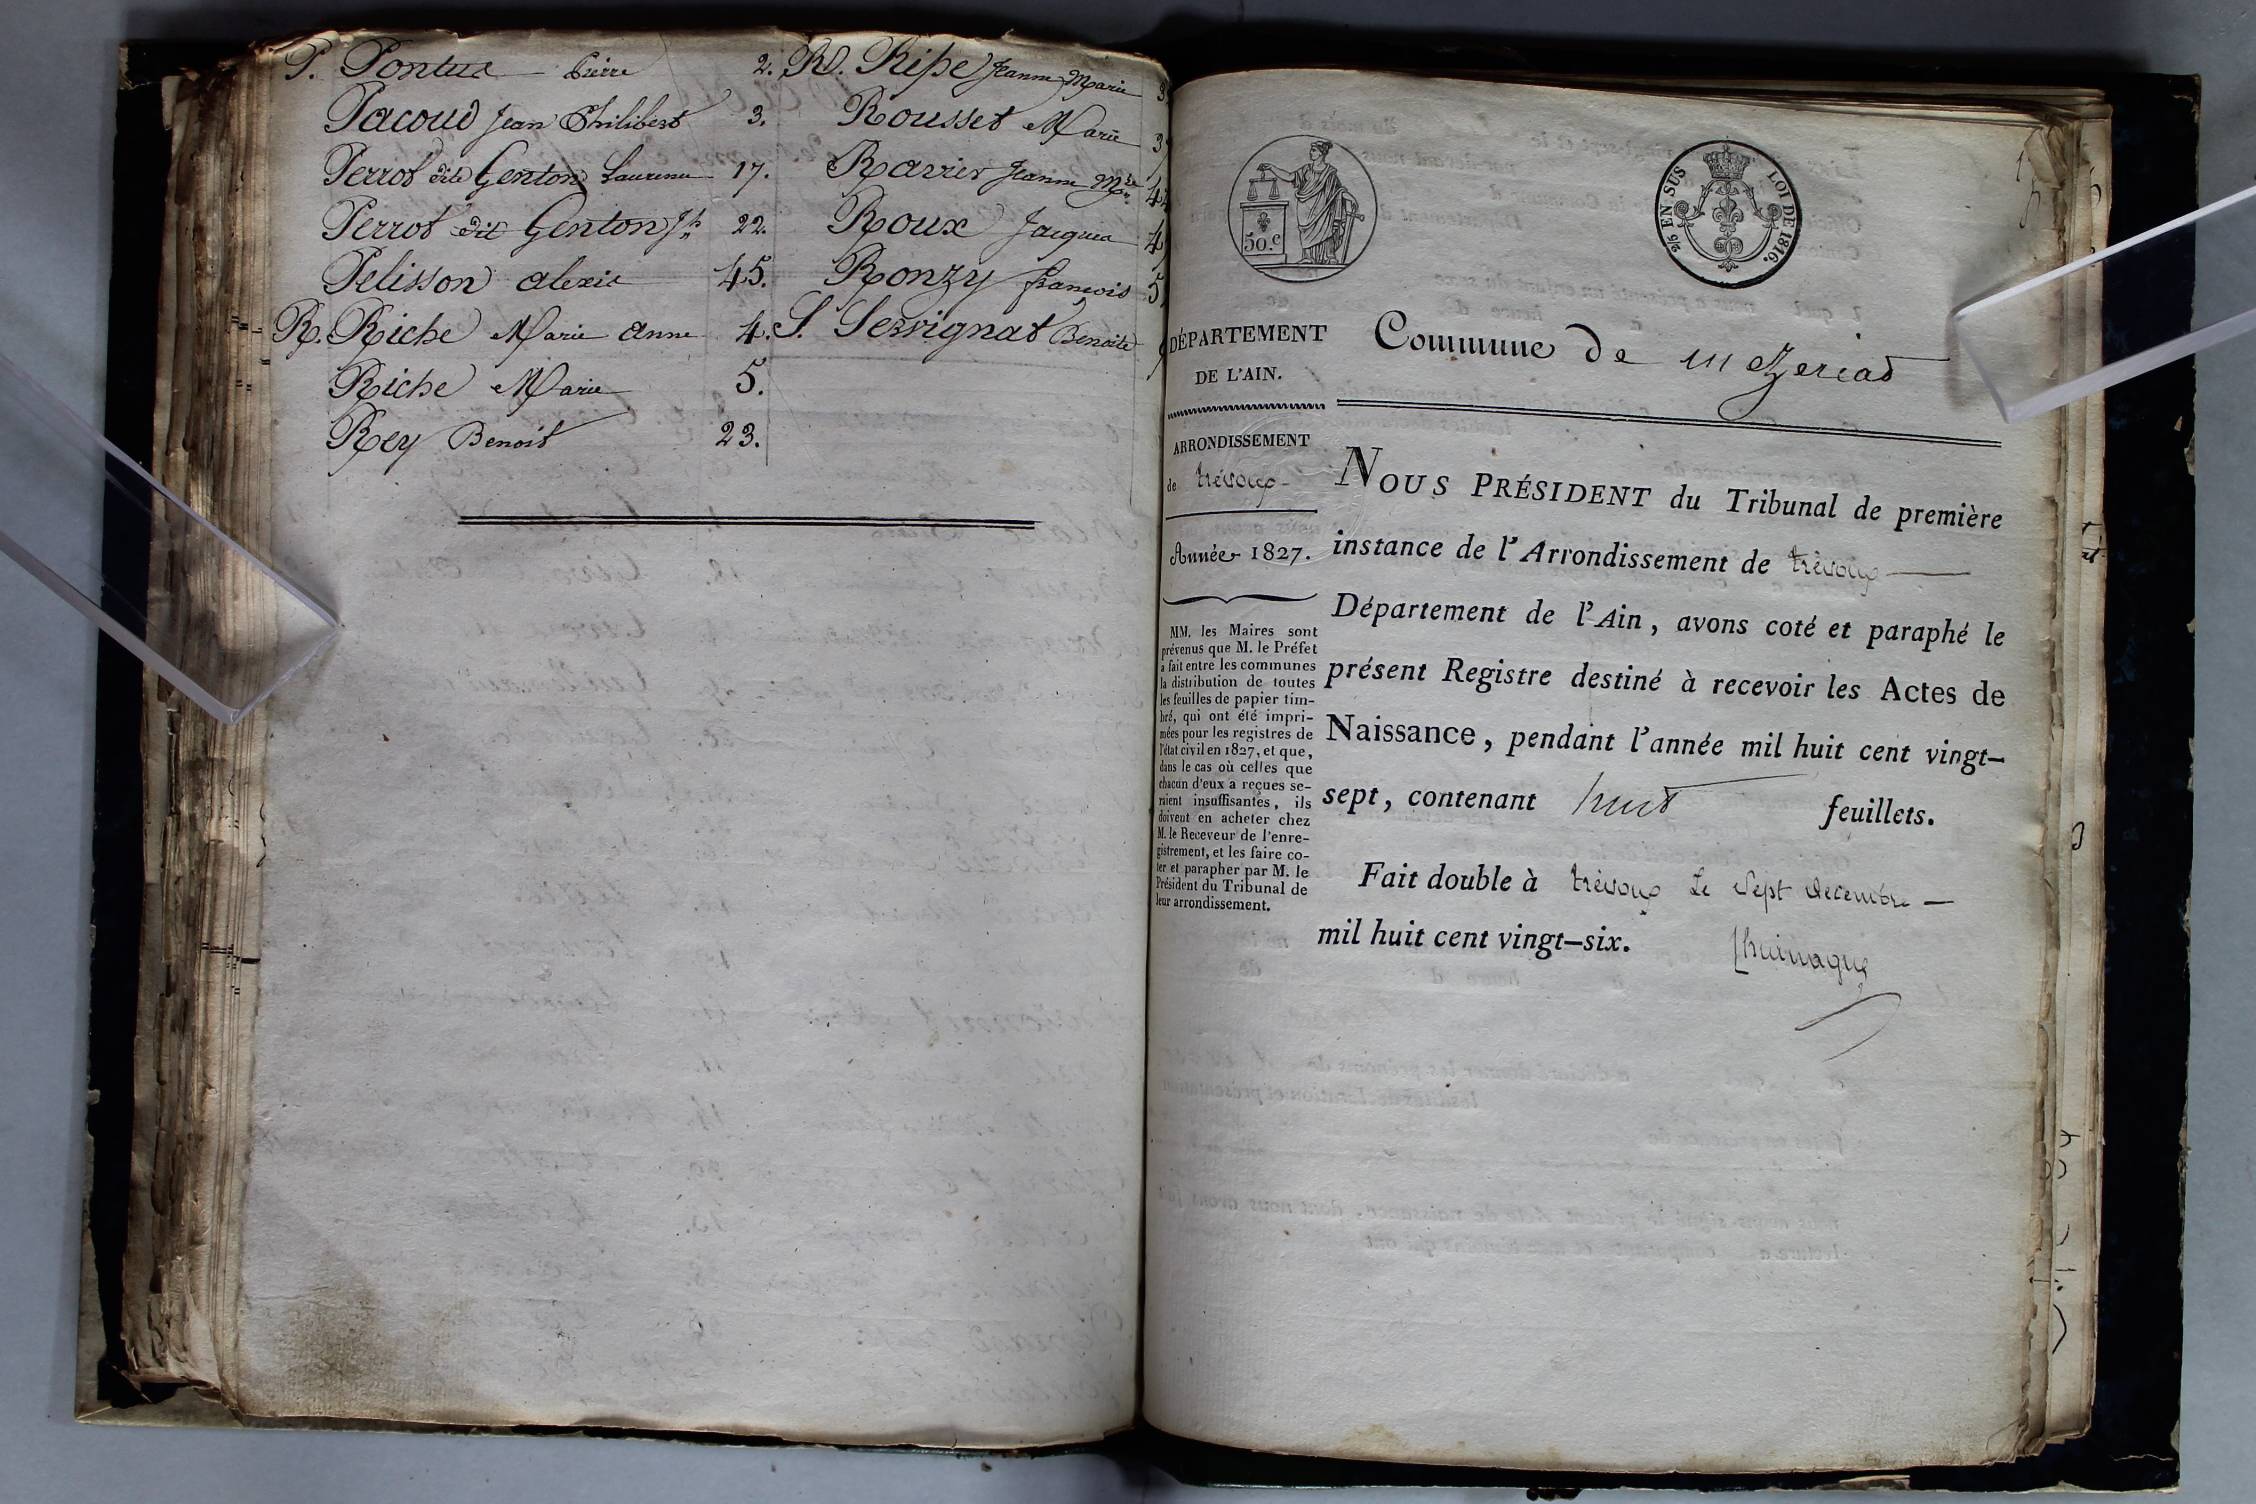 P. Pontus Pierre 2.
Pacoud Jean Philibert 3.
Perrot dite Genton Laurence 17.
Perrot dit Genton Jh 22.
Pelisson alexis 45.
R. Riche Marie anne 4.
Riche Marie 5.
Rey Benoit 23.
R. Ripe Jeanne Marie
Rousset Marie
Ravier Jeanne Mie
Roux Jacques
Ronzy françois
S. Servignat Benoite
50.c
2/5 EN SUS LOI DE 1816.
DÉPARTEMENT
DE L'AIN.
ARRONDISSEMENT
de trévoux
Année 1827.
MM. les Maires sont
prévenus que M. le Préfet
a fait entre les communes
la distribution de toutes
les feuilles de papier tim-
bré, qui ont été impri-
mées pour les registres de
l'état civil en 1827, et que,
dans le cas où celles que
chacun d'eux a reçues se-
raient insuffisantes, ils
doivent en acheter chez
M. le Receveur de l'enre-
gistrement, et les faire co-
ter et parapher par M. le
Président du Tribunal de
leur arrondissement.
Commune de mezeriat
NOUS PRÉSIDENT du Tribunal de première
instance de l'Arrondissement de trévoux
Département de l'Ain, avons coté et paraphé le
présent Registre destiné à recevoir les Actes de
Naissance, pendant l'année mil huit cent vingt-
sept, contenant huit feuillets.
Fait double à trévoux Le Sept decembre
mil huit cent vingt-six.